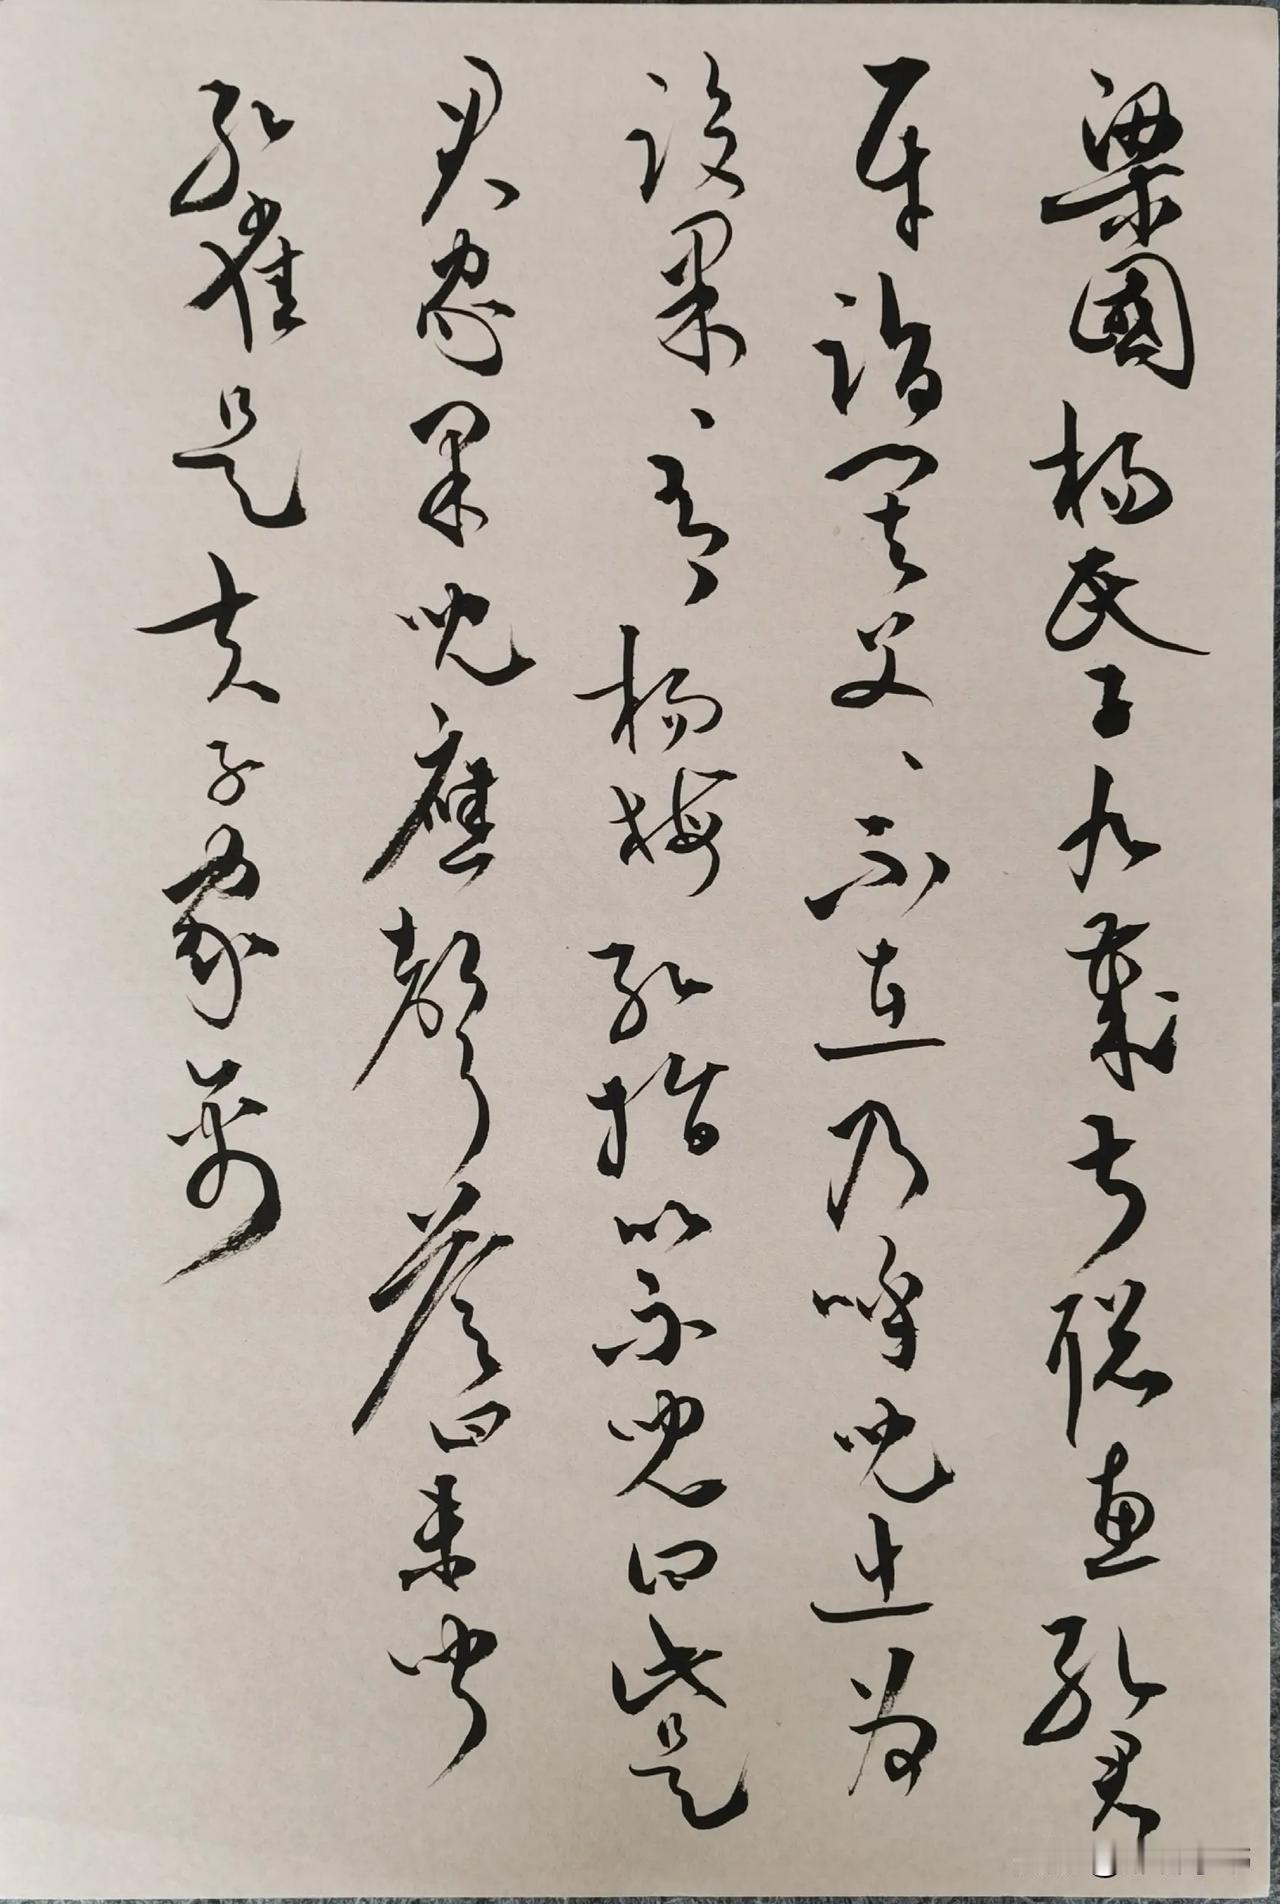 梁國楊氏子九歲甚聰惠孔君
平詣其父、不在乃呼兒出為
設果、有楊梅孔指以示兒曰此是
君家果兒應聲答曰未聞
孔雀是夫子家禽